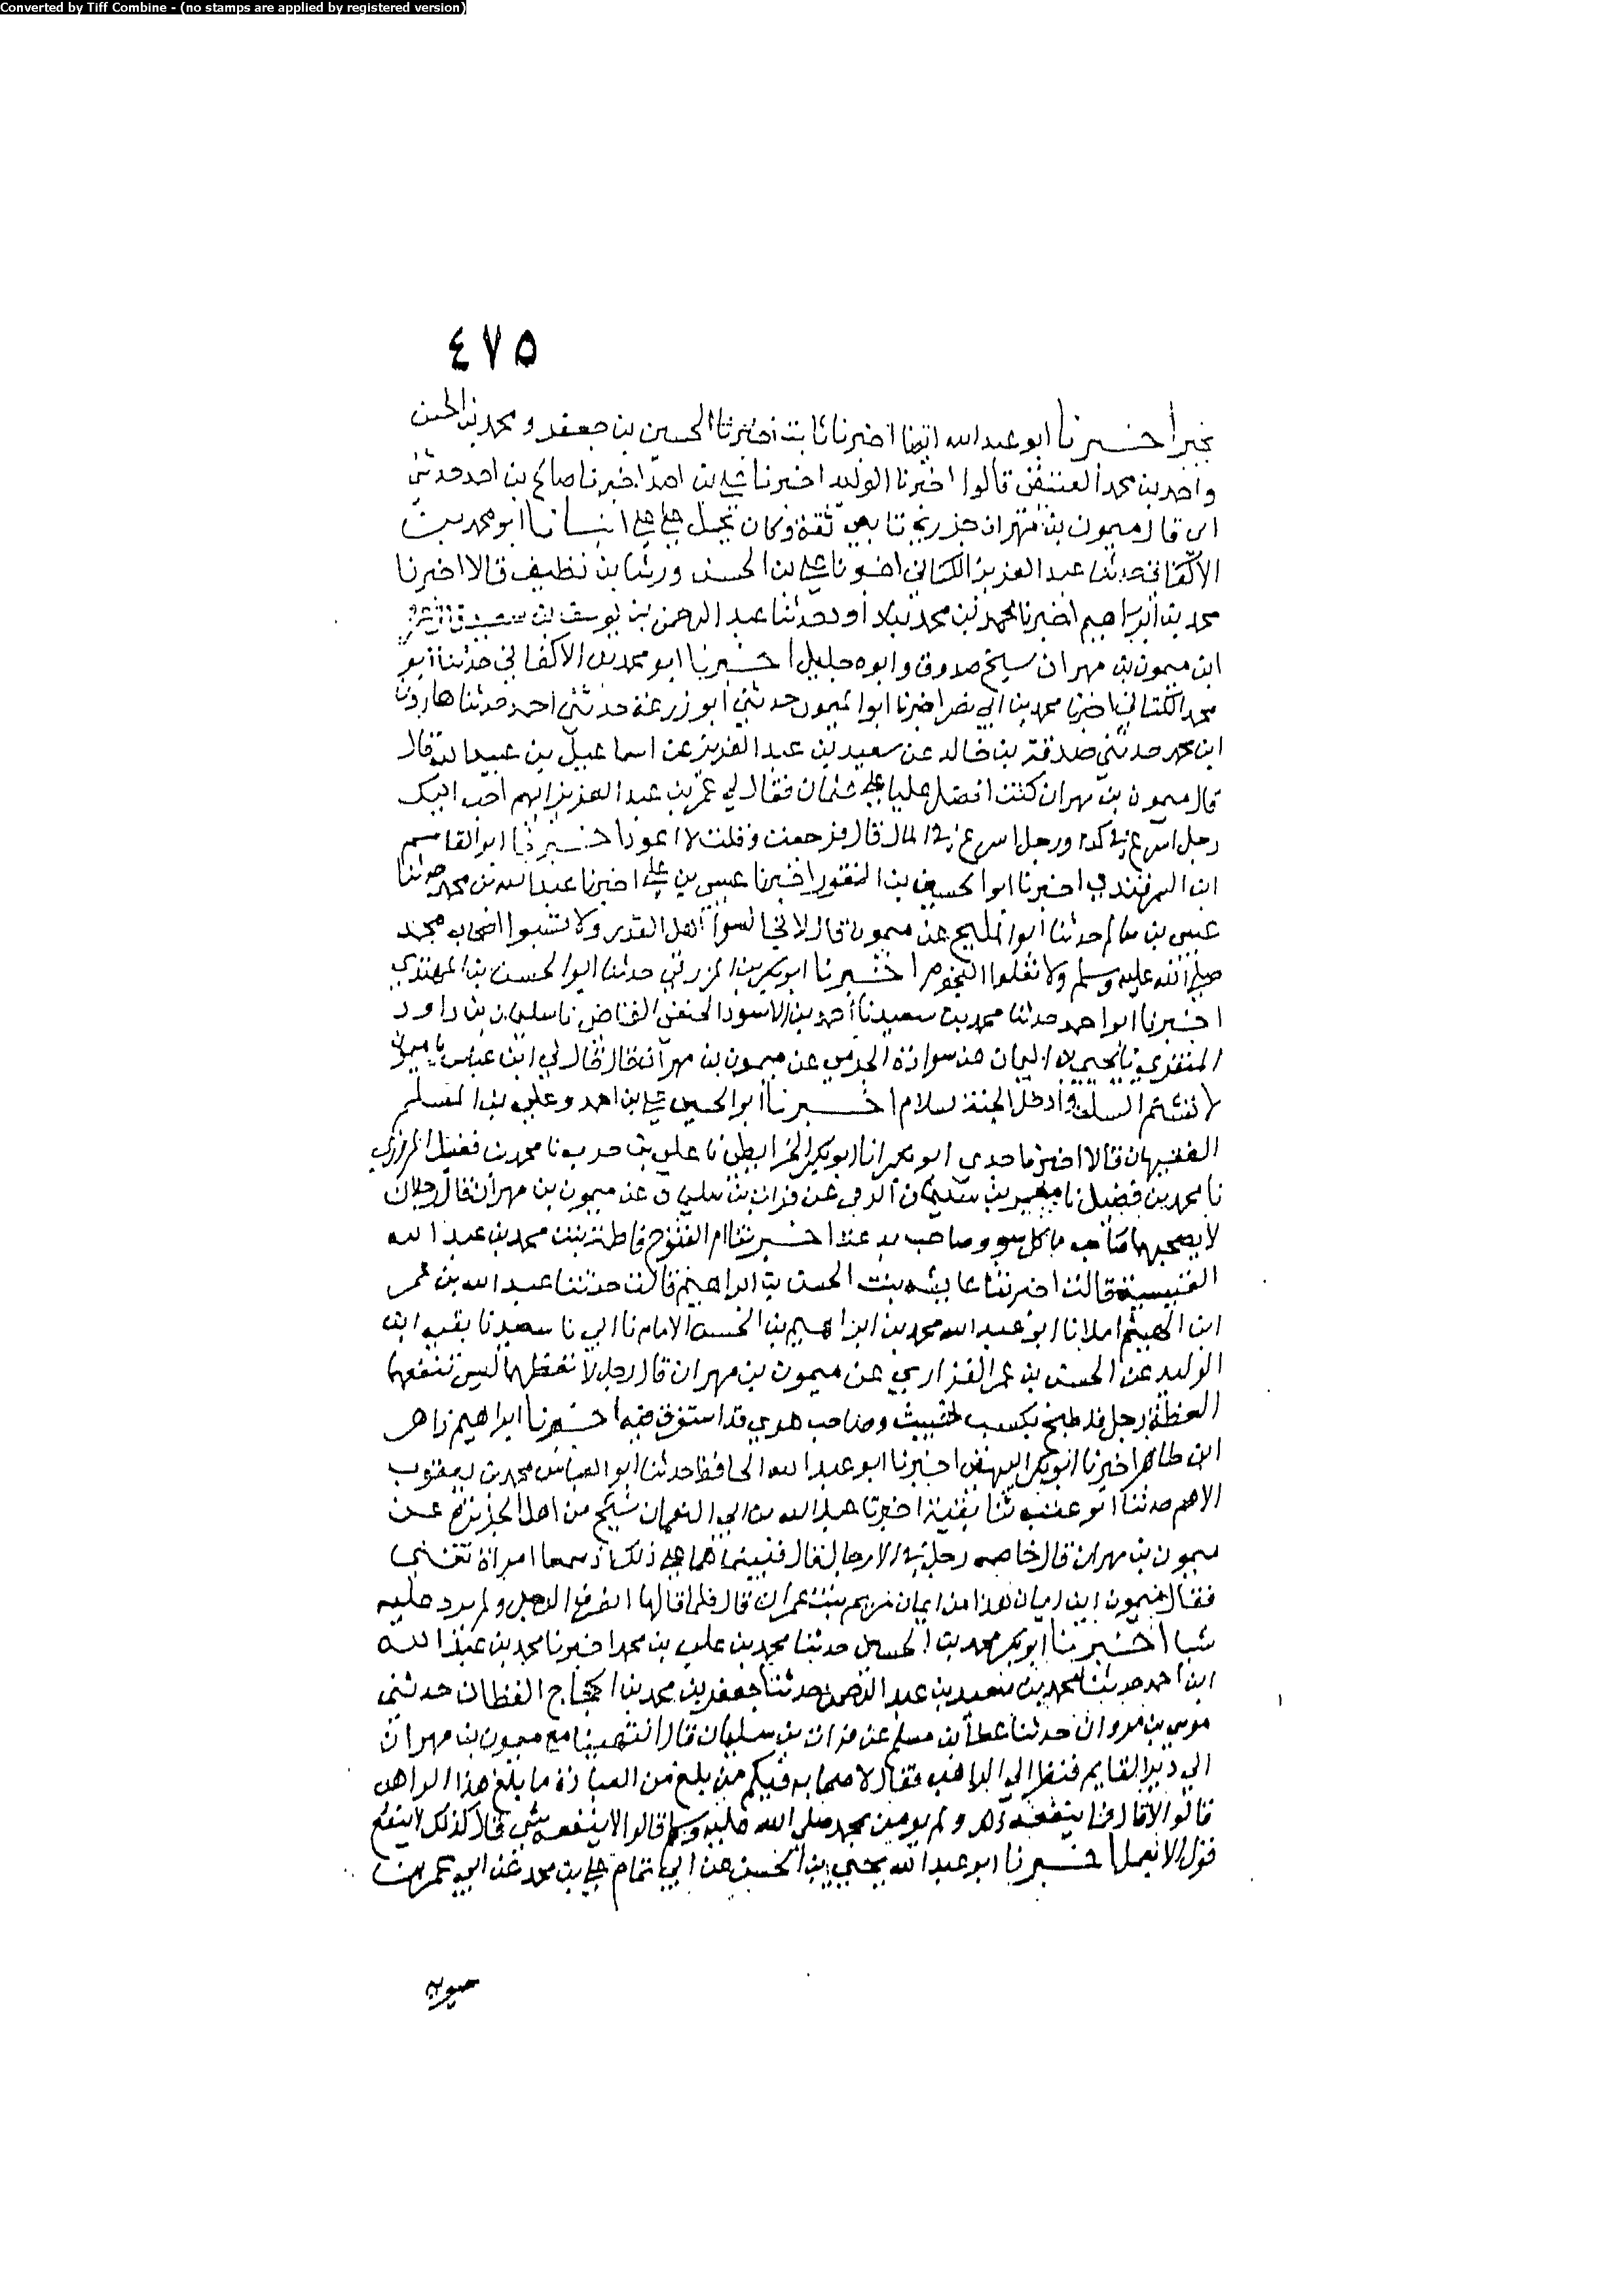 Converted by Tiff Combine - (no stamps are applied by registered version)
٤٧٥
اخبرنا ابو عبد الله ايضا اخبرنا ثابت اخبرنا الحسين بن جعفر ومحمد بن الحسن
واحمد بن محمد العتيقي قالوا اخبرنا الوليد اخبرنا علي بن احمد اخبرنا صالح بن احمد حدثني
ابي قال ميمون بن مهران جزري تابعي ثقة وكان يحمل على علي انبانا ابو محمد بن
الاكفاني حدثنا عبد العزيز الكتاني اخبرنا علي بن الحسن ورشا بن نظيف قالا اخبرنا
محمد بن ابراهيم اخبرنا محمد بن محمد بن داود حدثنا عبد الرحمن بن يوسف بن سعيد
ابن ميمون بن مهران شيخ صدوق وابوه جليل اخبرنا ابو محمد بن الاكفاني حدثنا ابو
محمد الكتاني اخبرنا محمد بن ابي نصر اخبرنا ابو الميمون حدثني ابو زرعة حدثني احمد حدثنا هارون
ابن محمد حدثني صدقة بن خالد عن سعيد بن عبد العزيز عن اسماعيل بن عبيد الله قال
قال ميمون بن مهران كنت افضل عليا على عثمان فقال لي عمر بن عبد العزيز ايهم احب اليك
رجل اسرع في كذا ورجل اسرع في المال قال فرجعت وقلت لا اعود اخبرنا ابو القاسم
ابن السمرقندي اخبرنا ابو الحسين بن النقور اخبرنا عيسى بن علي اخبرنا عبد الله بن محمد حدثنا
عيسى بن سالم حدثنا ابو المليح عن ميمون قال لا تجالسوا اهل القدر ولا تسبوا اصحاب محمد
صلى الله عليه وسلم ولا تعلموا النجوم اخبرنا ابو بكر بن المزرفي حدثنا ابو الحسين بن المهتدي
اخبرنا ابو احمد حدثنا محمد بن سعيد نا احمد بن الاسود الحنفي القاضي نا سليمان بن داود
المنقري نا يحيى بن اليمان عن سوادة الجرمي عن ميمون بن مهران قال قال لي ابن عباس يا ميمون
لا تشتم السلف وادخل الجنة بسلام اخبرنا ابو الحسين علي بن احمد وعلي بن المسلم
الفقيهان قالا اخبرنا جدي ابو بكر انا ابو بكر الخرايطي نا علي بن حرب نا محمد بن فضيل
نا محمد بن فضيل نا معمر بن سليمان الرقي عن فرات بن سليمان عن ميمون بن مهران قال رجلان
لا تصحبهما صاحب ماكل سو وصاحب بدعة اخبرتنا ام الفتوح فاطمة بنت محمد بن عبد الله
القيسية قالت اخبرتنا عايشه بنت الحسن بن ابراهيم قالت حدثنا عبد الله بن عمر
ابن الهيثم املا نا ابو عبد الله محمد بن ابراهيم بن الحسن الامام نا ابي نا سعيد نا بقيه ابن
الوليد عن الحسن بن عمر الفزاري عن ميمون بن مهران قال رجلان لا تعظهما ليس تنفعهما
العظة رجل قد طبخ بكسب خبيث وصاحب هوي قد استغرق فيه اخبرنا ابراهيم زاهر
ابن طاهر اخبرنا ابو بكر البيهقي اخبرنا ابو عبد الله الحافظ حدثنا ابو العباس محمد بن يعقوب
الاصم حدثنا ابو عتبه ثنا بقية اخبرنا عبد الله بن ابي النعمان شيخ من اهل الجزيرة عن
ميمون بن مهران قال خاصمه رجل في الارجا فقال فبينما هما على ذلك اذ سمعا امراة تتغنى
فقال ميمون اين ايمان هذا من ايمان مريم بنت عمران قال فلما قالها انصرف الرجل ولم يرد عليه
شيا اخبرنا ابو بكر محمد بن الحسين حدثنا محمد بن علي بن محمد اخبرنا محمد بن عبد الله
ابن احمد حدثنا محمد بن سعيد بن عبد الرحمن حدثنا جعفر بن محمد بن الحجاج القطان حدثني
موسى بن مروان حدثنا عطا بن مسلم عن فرات بن سليمان قال انتهينا مع ميمون بن مهران
الي دير القايم فنظر الي الراهب فقال لاصحابه فيكم من بلغ من العبادة ما بلغ هذا الراهب
قالوا لا قال فما ينفعه ذلك ولم يومن بمحمد صلى الله عليه وسلم قالوا لا ينفعه شي قال كذلك لا ينفع
قول الا بعمل اخبرنا ابو عبد الله يحيى بن الحسن عن ابي تمام علي بن محمد عن ابي عمر بن
حيويه